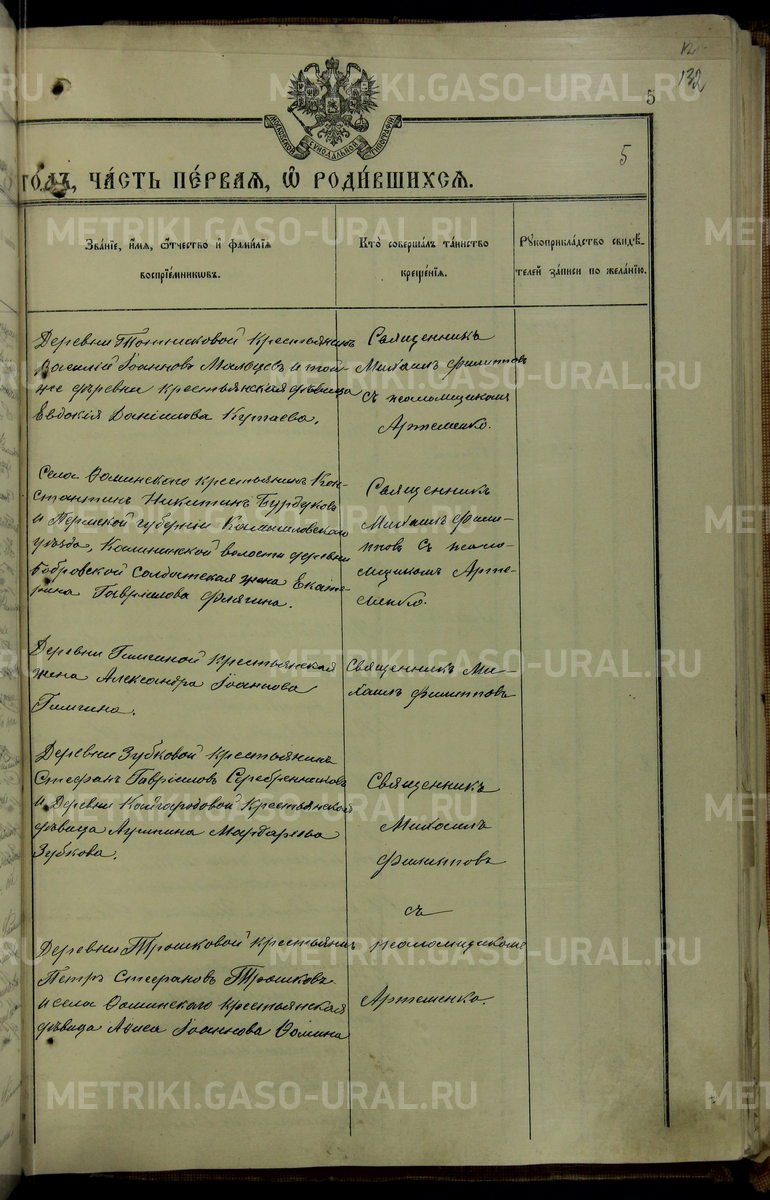 132
5
МОСКОВСКОЙ СѴНОДАЛЬНОЙ ТИПОГРАФІИ
5
ГОДЪ, ЧА́СТЬ ПЕ́РВАЯ, Ѽ РОДИ́ВШИХСЯ.
Зва́нїе, и́мя, ѻ́тчество и҆ фами́лїя
воспрїе́мниковъ.
Кто̀ соверша́лъ та́инство
креще́нїя.
Рукоприкла́дство свидѣ́-
телей за́писи по жела́нїю.
Деревни крестьянинъ
Василій Іоанновъ Мальцевъ и той-
же деревни крестьянская дѣвица
Евдокія Даніилова Кутаева.
Священникъ
Михаилъ Филипповъ
съ псаломщикомъ
Артеменко.
Села Ѳоминскаго крестьянинъ Кон-
стантинъ Никитинъ Бурдуковъ
и Пермской губерніи Камышловскаго
уѣзда, Калининской волости деревни
Бобровской солдатская жена Екате-
рина Гавріилова Флягина.
Священникъ
Михаилъ Фили-
пповъ съ псало-
мщикомъ Арте-
менко.
Деревни крестьянская
жена Александра Іоаннова
Священникъ Ми-
хаилъ Филипповъ
Деревни Зубковой крестьянинъ
Стефанъ Гавріиловъ Серебренниковъ
и деревни Кайгородовой крестьянской
дѣвица Мардарьева
Зубкова.
Священникъ
Михаилъ
Филипповъ
съ
псаломщикомъ
Артеменко.
Деревни Трошковой крестьянинъ
Петръ Стефановъ Трошковъ
и села Ѳоминскаго крестьянская
дѣвица Іоаннова Ѳомина
METRIKI.GASO-URAL.RU